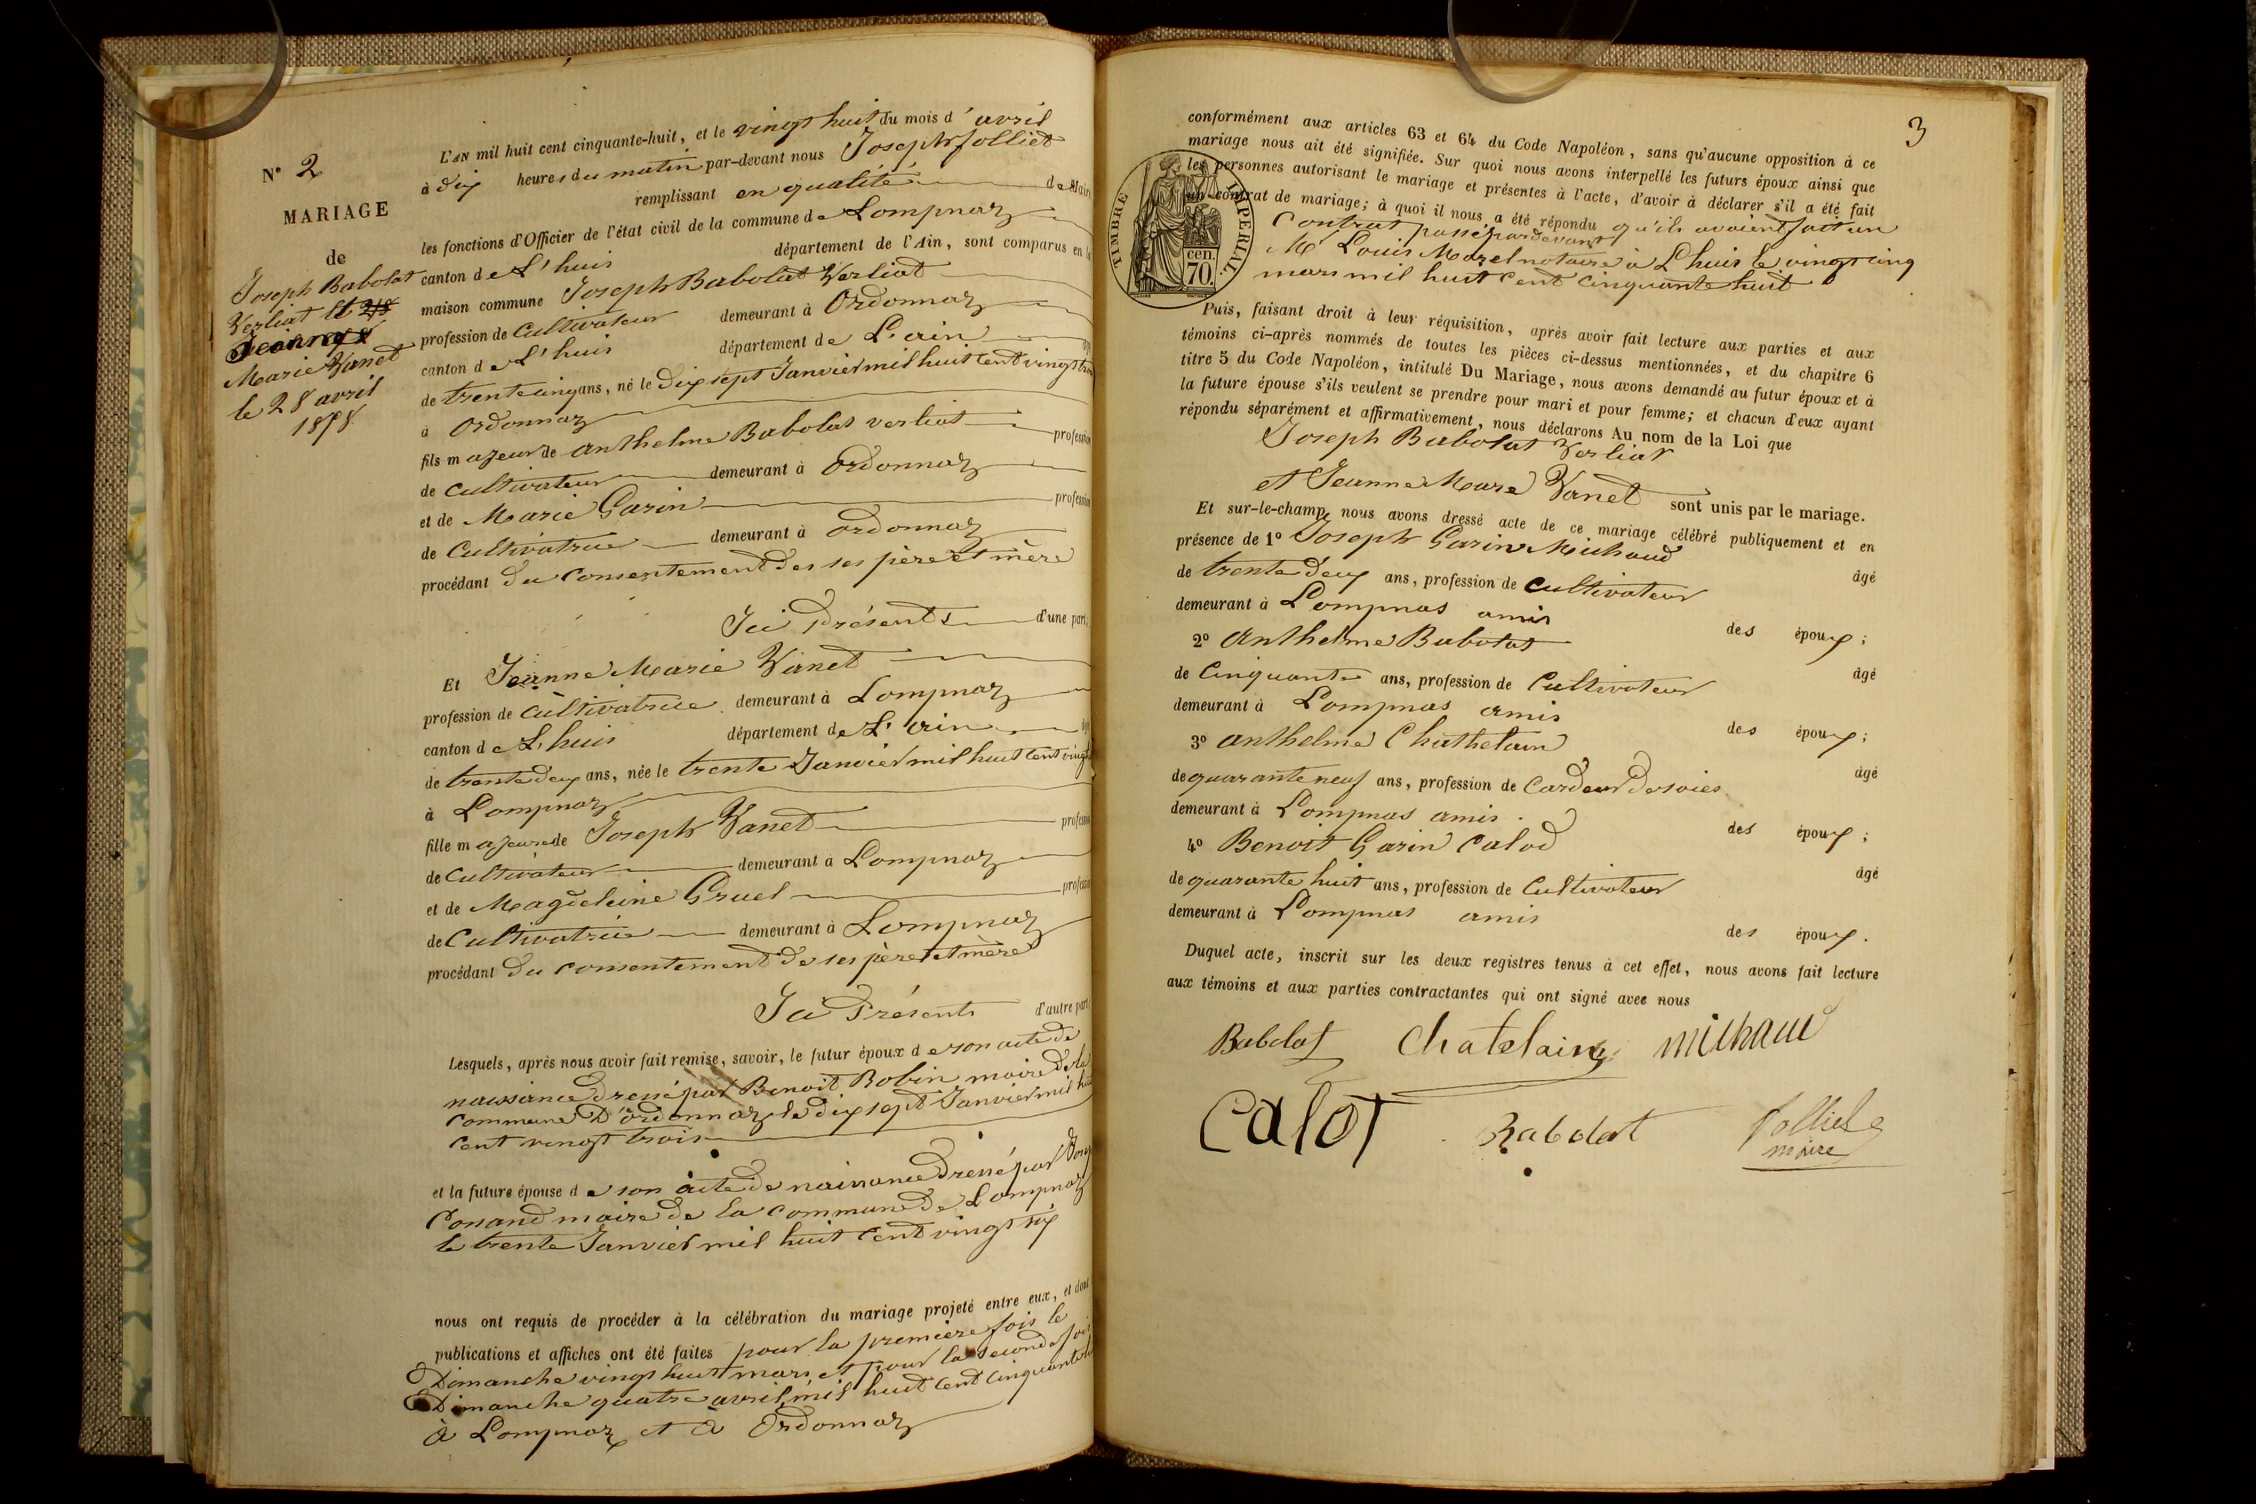 N° 2
MARIAGE
de
Joseph Babolat
Verliat et
Jeanne
Marie Vanet
le 28 avril
1858
L'AN mil huit cent cinquante-huit, et le vingt huit du mois d'avril
à dix heures du matin par-devant nous Joseph Jolliet
remplissant en qualité de Maire
les fonctions d'Officier de l'état civil de la commune de Lompnaz
canton de L'huis département de l'Ain, sont comparus en la
maison commune Joseph Babolat Verliat
profession de Cultivateur demeurant à Ordonnaz
canton de L'huis département de L'ain
de trente cinq ans, né le dix sept Janvier mil huit cent vingt trois
à Ordonnaz
fils majeur de anthelme Babolat verliat profession
de Cultivateur demeurant à Ordonnaz
et de Marie Garin profession
de Cultivatrice demeurant à Ordonnaz
procédant du consentement des ses père et mère
Ici Présents d'une part,
Et Jeanne Marie Vanet
profession de Cultivatrice demeurant à Lompnaz
canton de L'huis département de L'ain
de trente deux ans, née le trente Janvier mil huit cent vingt
à Lompnaz
fille majeure de Joseph Vanet profession
de Cultivateur demeurant à Lompnaz
et de Magdeleine Gruel profession
de Cultivatrice demeurant à Lompnaz
procédant du consentement de ses père et mère
Ici Présents d'autre part
Lesquels, après nous avoir fait remise, savoir, le futur époux de son acte de
naissance dressé par Benoit Bobin maire de la
commune D'ordonnaz le dix sept Janvier mil huit
cent vingt trois
et la future épouse de son acte de naissance dressé par
Conand maire de la commune de Lompnaz
le trente Janvier mil huit cent vingt six
nous ont requis de procéder à la célébration du mariage projeté entre eux, et dont
publications et affiches ont été faites pour la première fois le
Dimanche vingt huit mars et pour la seconde fois
Dimanche quatre avril mil huit cent cinquante huit
à Lompnaz et à Ordonnaz
3
conformément aux articles 63 et 64 du Code Napoléon, sans qu'aucune opposition à ce
mariage nous ait été signifiée. Sur quoi nous avons interpellé les futurs époux ainsi que
les personnes autorisant le mariage et présentes à l'acte, d'avoir à déclarer s'il a été fait
un contrat de mariage; à quoi il nous a été répondu qu'ils avoient fait un
Contrat passé pardevant
Me Louis Mazel notaire à Lhuis le vingt cinq
mars mil huit cent cinquante huit
TIMBRE IMPERIAL.
cen. 70.
Puis, faisant droit à leur réquisition, après avoir fait lecture aux parties et aux
témoins ci-après nommés de toutes les pièces ci-dessus mentionnées, et du chapitre 6
titre 5 du Code Napoléon, intitulé Du Mariage, nous avons demandé au futur époux et à
la future épouse s'ils veulent se prendre pour mari et pour femme; et chacun d'eux ayant
répondu séparément et affirmativement, nous déclarons Au nom de la Loi que
Joseph Babolat Verliat
et Jeanne Marie Vanet sont unis par le mariage.
Et sur-le-champ nous avons dressé acte de ce mariage célébré publiquement et en
présence de 1° Joseph Garin Michaud
âgé
de trente deux ans, profession de Cultivateur
demeurant à Lompnas amis des époux;
2° Anthelme Babolat
âgé
de Cinquante ans, profession de Cultivateur
demeurant à Lompnas amis des époux;
3° anthelme Chathelain
âgé
de quarante neuf ans, profession de Cardeur de soies
demeurant à Lompnas amis des époux;
4° Benoit Garin Calod
âgé
de quarante huit ans, profession de Cultivateur
demeurant à Lompnas amis des époux.
Duquel acte, inscrit sur les deux registres tenus à cet effet, nous avons fait lecture
aux témoins et aux parties contractantes qui ont signé avec nous
Babolat Chatelain Michaud
Calot Babolat Jolliet
maire